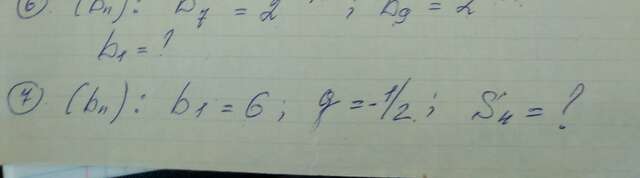 6). (bn): b7 = 2 ; b9 = 2
b1 = ?
7). (bn): b1 = 6; q = -1/2; S4 = ?